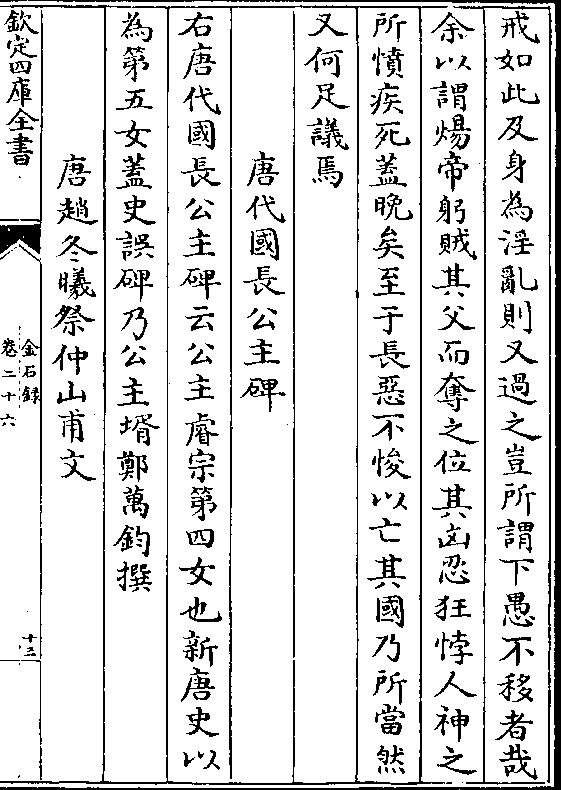 戒如此及身為淫亂則又過之豈所謂下愚不移者哉
余以謂煬帝躬賊其父而奪之位其凶忍狂悖人神之
所憤疾死蓋晚矣至于長惡不悛以亡其國乃所當然
又何足議焉
唐代國長公主碑
右唐代國長公主碑云公主睿宗第四女也新唐史以
為第五女蓋史誤碑乃公主壻鄭萬鈞撰
唐趙冬曦祭仲山甫文
欽定四庫全書
金石録
卷二十六
十三